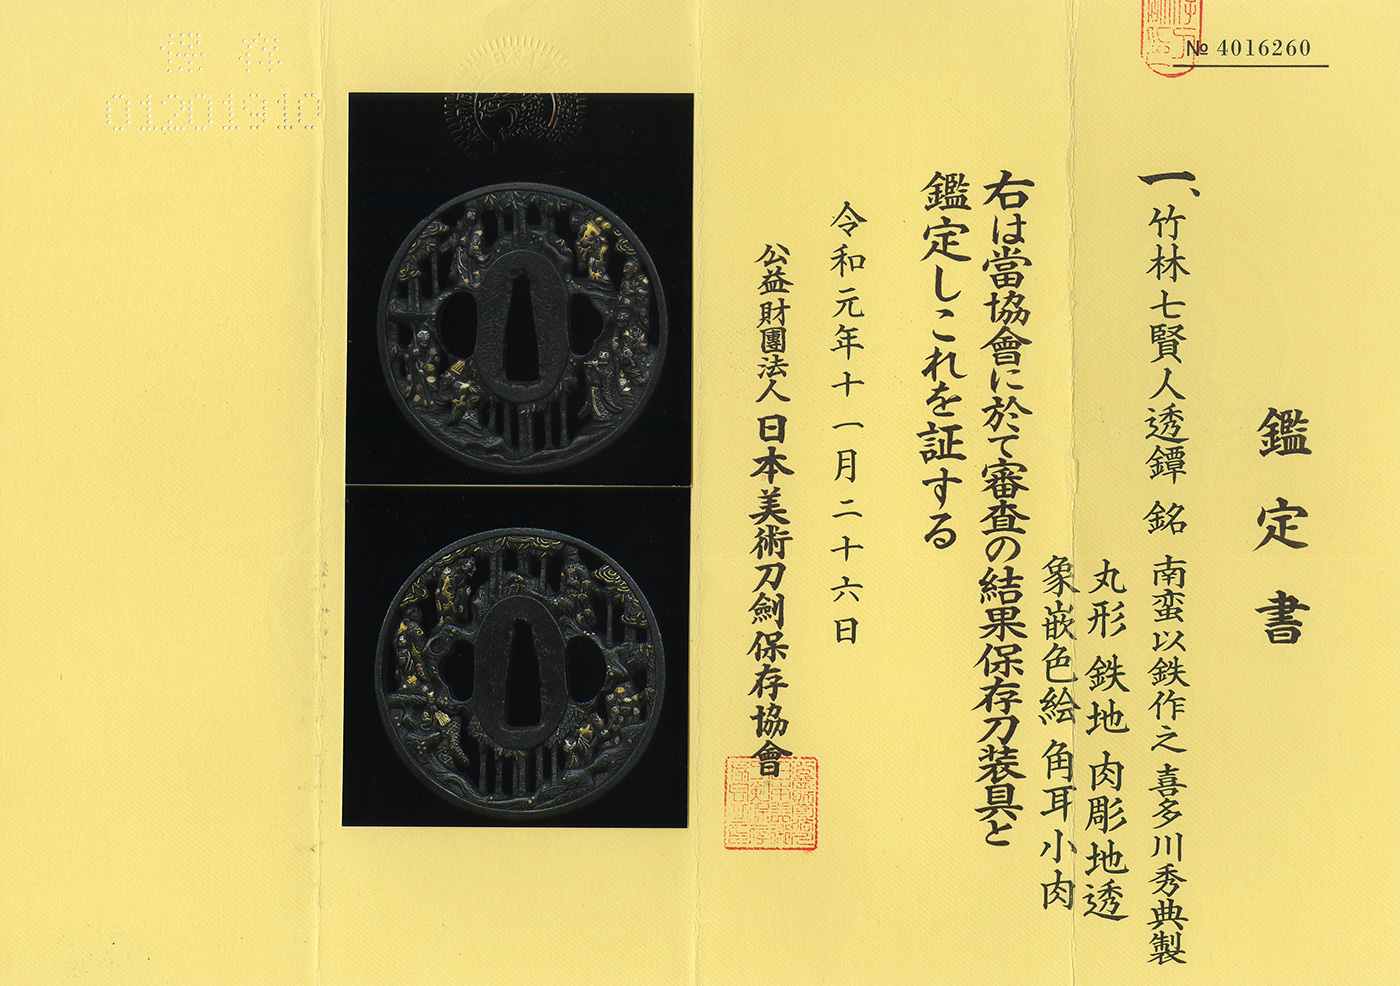 № 4016260
鑑定書
一、竹林七賢人透鐔 銘 南蛮以鉄作之 喜多川秀典製
丸形 鉄地 肉彫地透
象嵌色絵 角耳小肉
右は當協會に於て審査の結果保存刀装具と
鑑定しこれを証する
令和元年十一月二十六日
公益財團法人 日本美術刀劍保存協會
01201910